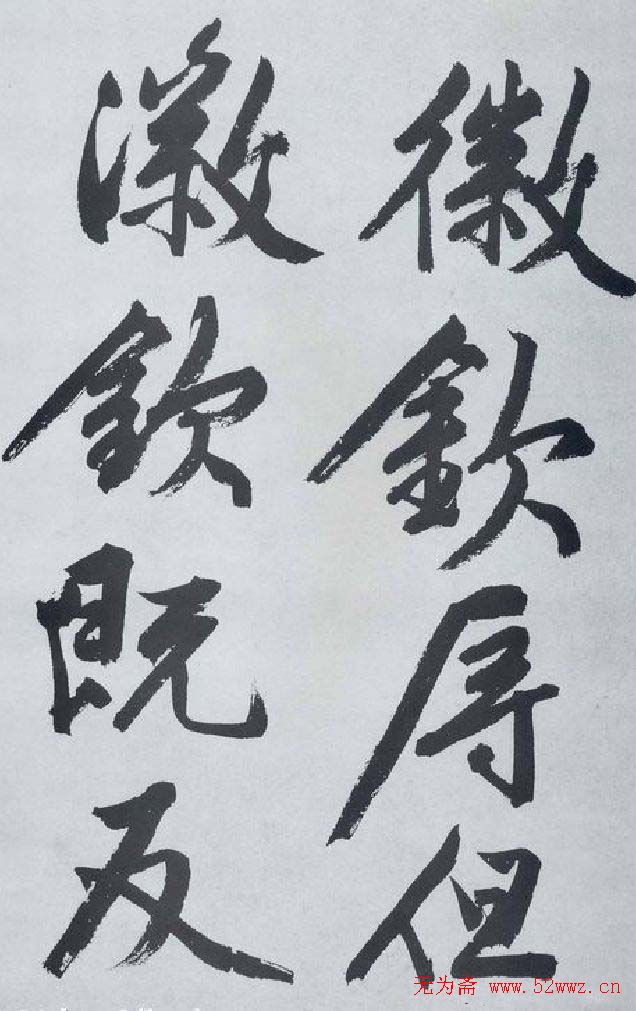 徽欽辱但
徽欽既反
无为斋 www.52wwz.cn